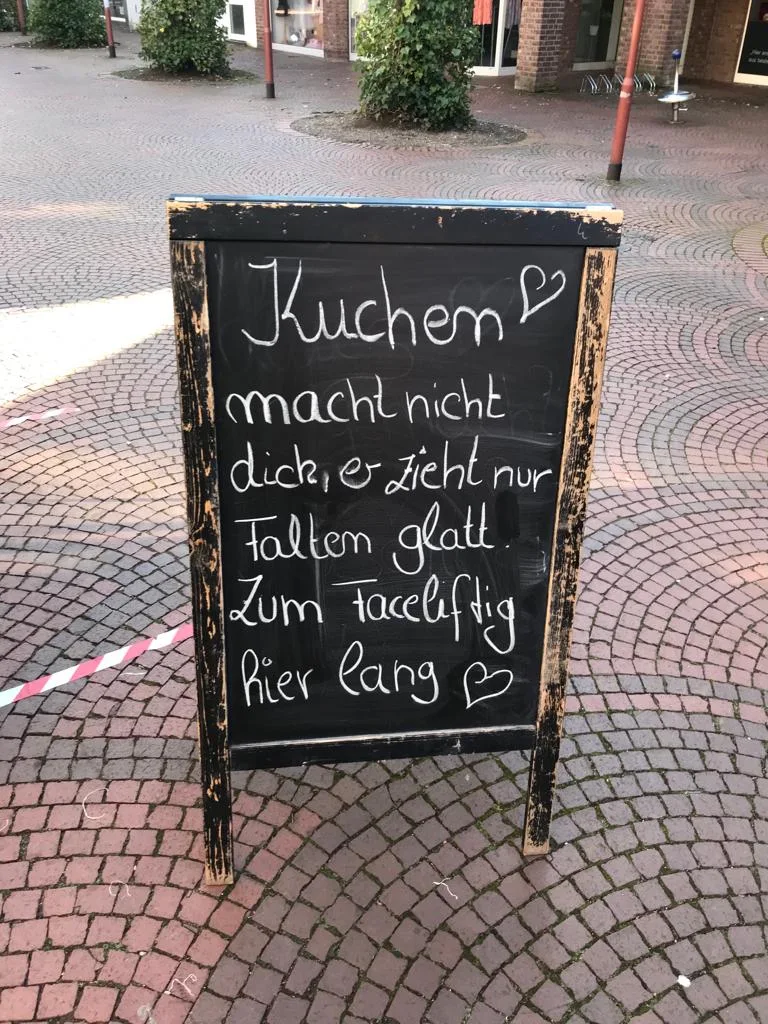 Kuchen
macht nicht
dick, er zieht nur
Falten glatt.
Zum Faceliftig
hier lang